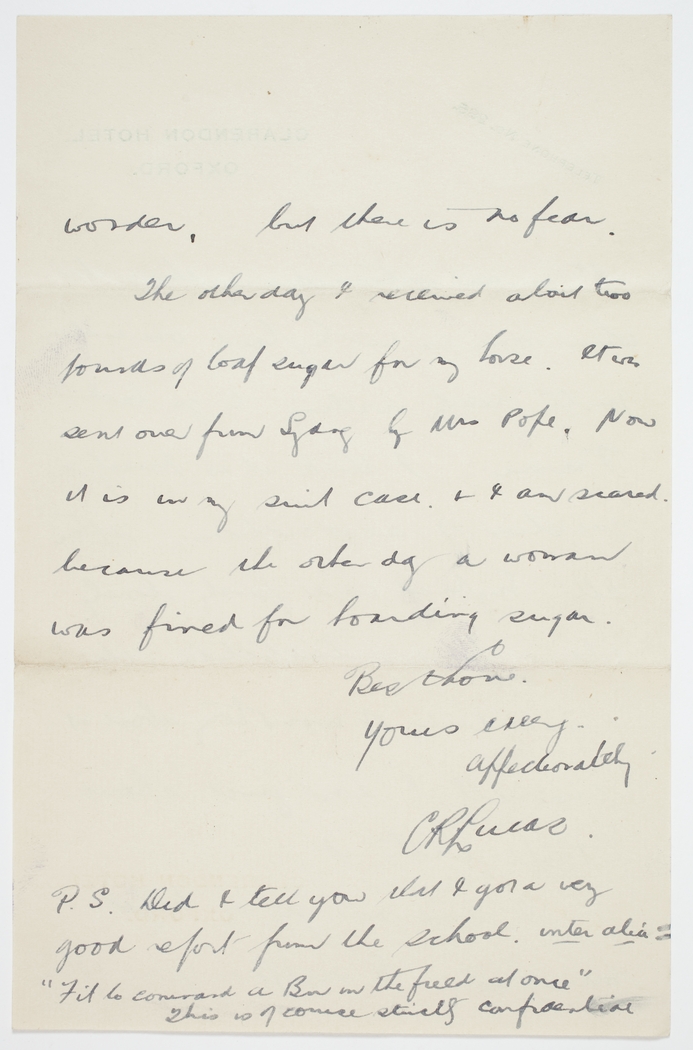 wonder, but there is no fear.
The other day I received about two
pounds of loaf sugar for my horse. It was
sent over from Sydney by Mrs Pope. Now
it is in my suit case. & I am scared.
because the other day a woman
was fined for hoarding sugar.
Best love.
Yours every.
affectionately
CRLucas.
P.S. Did I tell you that I got a very
good report from the school. inter alia =
"Fit to command a Bn in the field at once"
This is of course strictly confidential